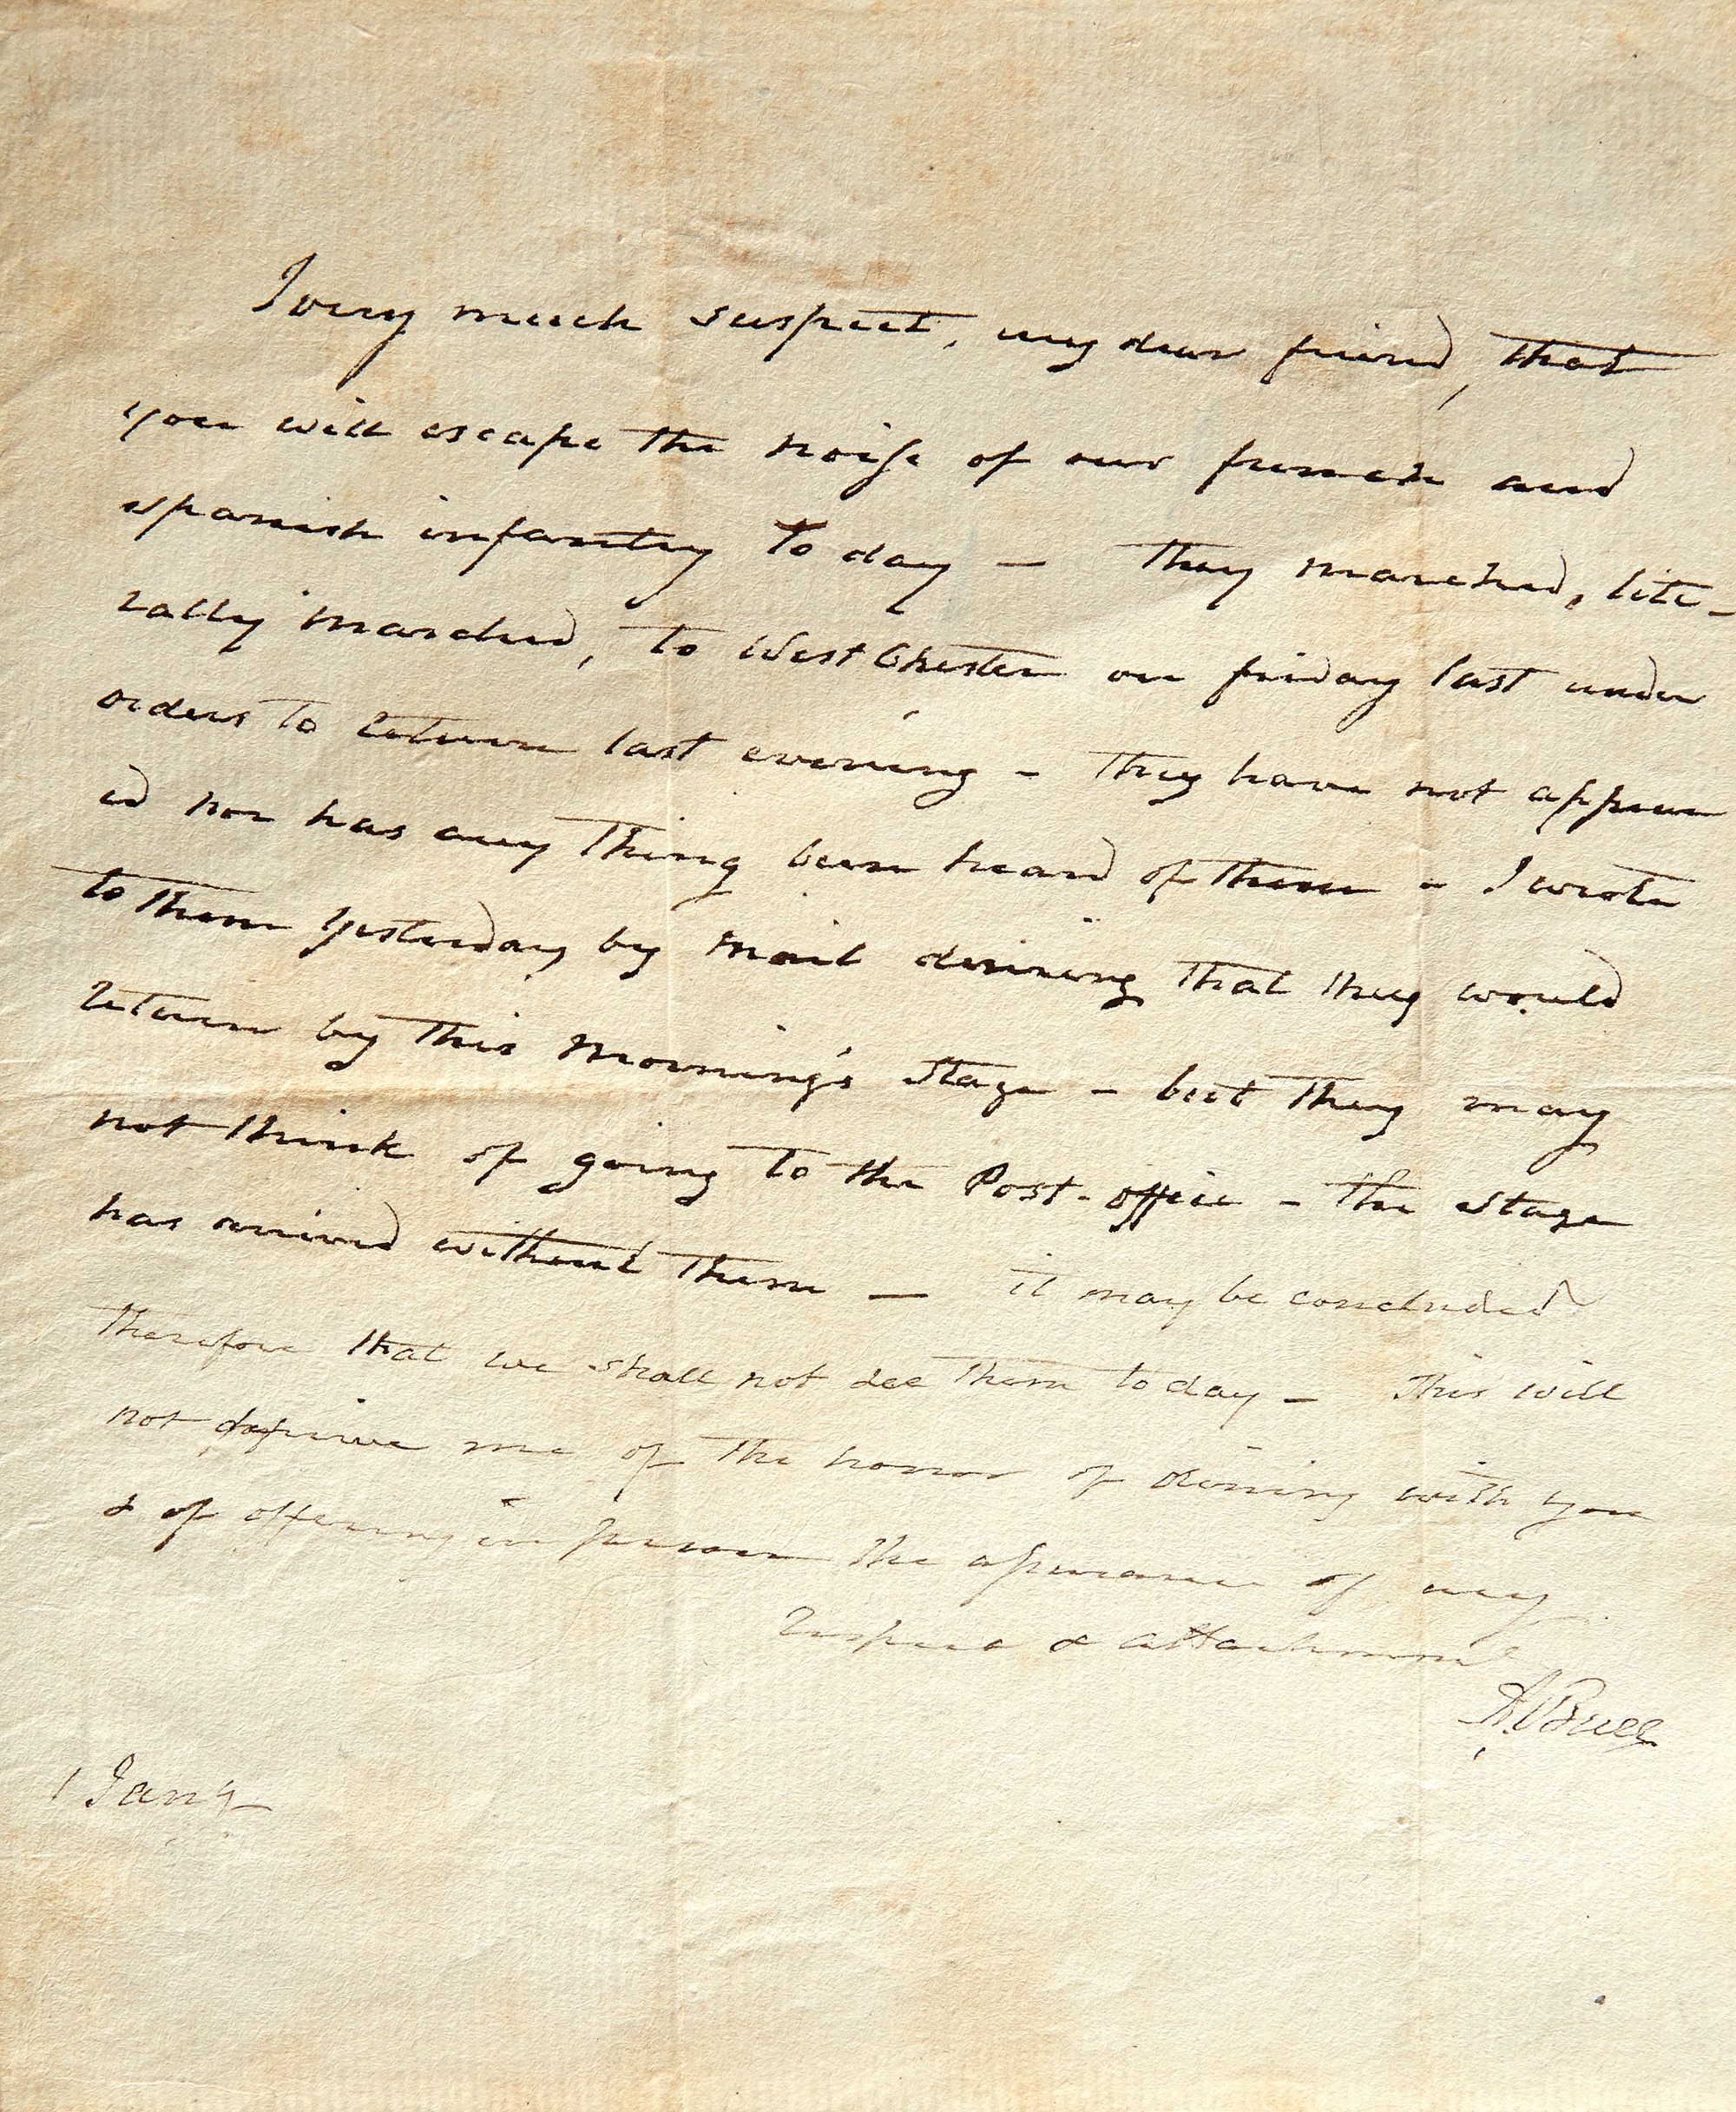 I very much suspect, my dear friend, that
you will escape the noise of our french and
spanish infantry To day — They marched, lite-
rally marched, to West Chester on friday last under
orders to return last evening - They have not appear
ed nor has any Thing been heard of them - I wrote
to them yesterday by mail desiring that they would
return by this Morning's Stage - but they may
not think of going to the Post-office - The Stage
has arrived without them — it may be concluded
Therefore that we shall not see them to day — This will
not deprive me of The honor of dining with you
& of offering in person the assurance of my
respect & attachment
A. Burr
1 Jany